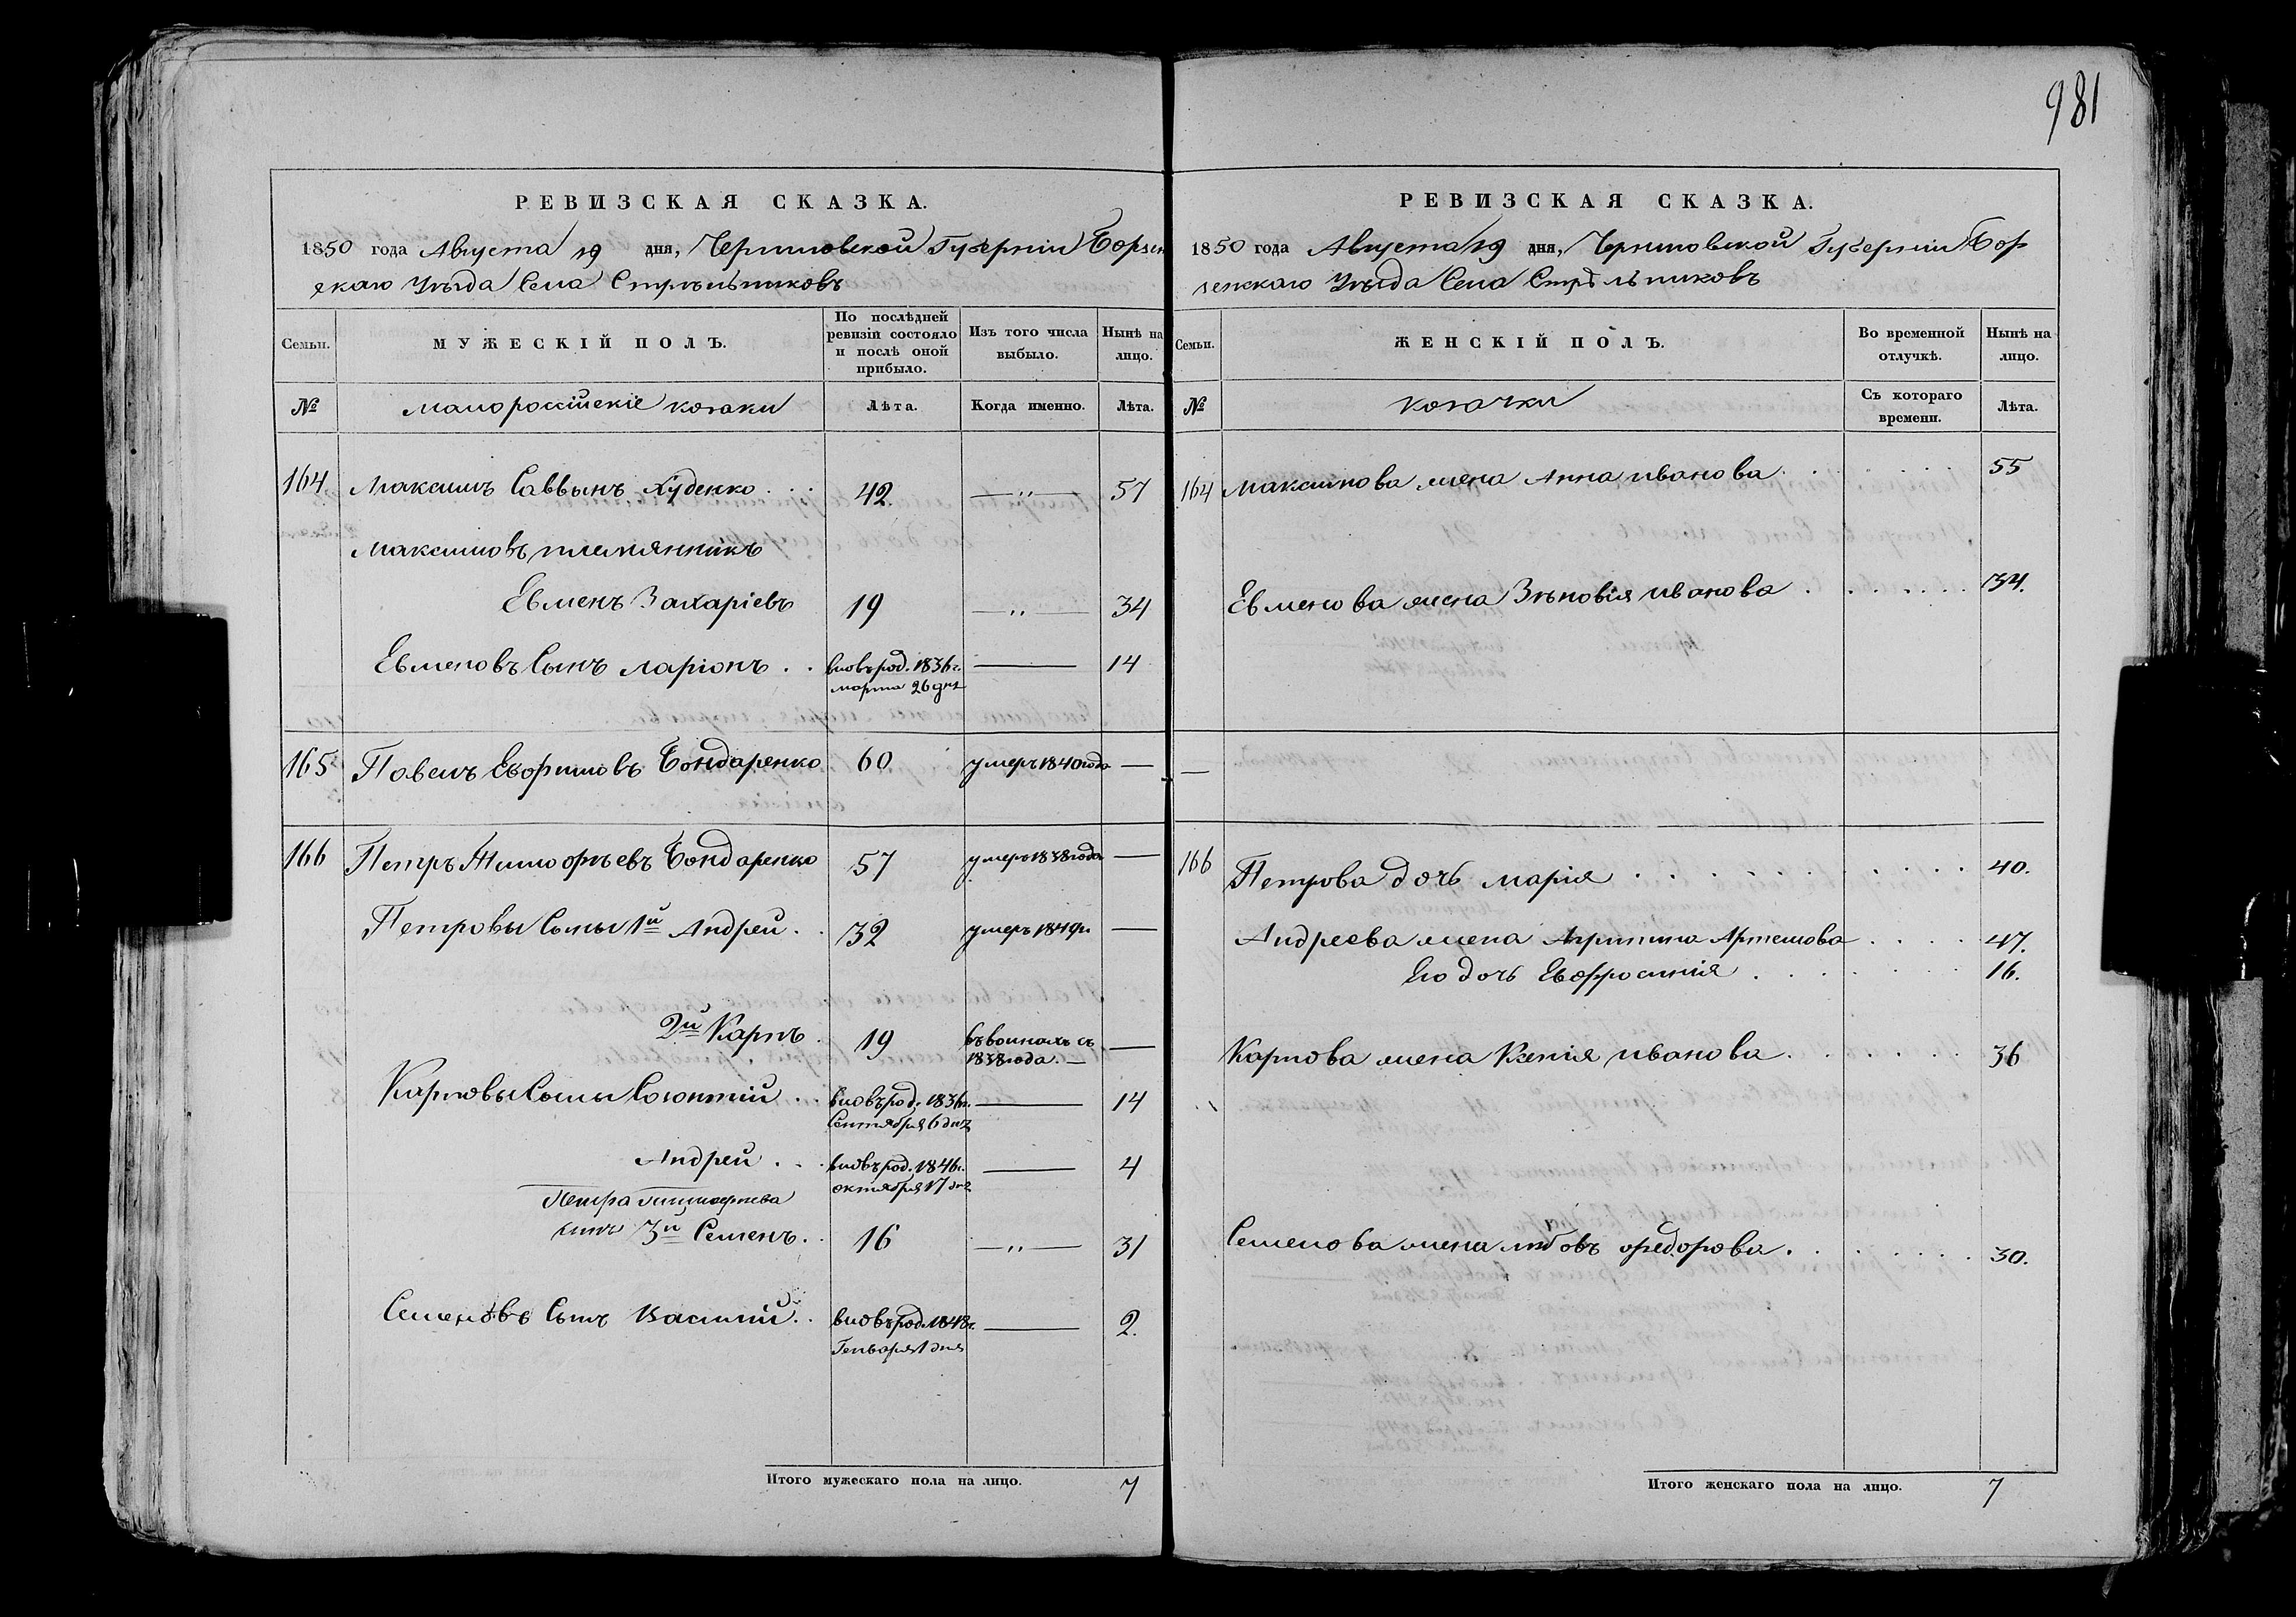 981
РЕВИЗСКАЯ СКАЗКА.
1850 года Августа 19 дня, Черниговской Губерніи Борзен
скаго Уѣзда Села Стрѣльниковъ
Семьи.
МУЖЕСКІЙ ПОЛЪ.
По послѣдней ревизіи состояло и послѣ оной прибыло.
Изъ того числа выбыло.
Нынѣ на лицо.
№
Малороссійскіе козаки
Лѣта.
Когда именно.
Лѣта.
164 Максимъ Саввынъ Худенко . . . 42. —„— 57
Максимовъ племянникъ
Евменъ Захаріевъ 19 —„— 34
Евменовъ Сынъ Ларіонъ . . вновь род. 1836 г. — 14
марта 26 дня
165 Павелъ Евфимовъ Бондаренко 60 умеръ 1840 года —
166 Петръ Тимофѣевъ Бондаренко 57 умеръ 1838 года —
Петровы Сыны 1й Андрей . . 32 умеръ 1849 г. —
2й Карпъ . 19 въ воинахъ съ —
1838 года. —
Карповы Сыны Созонтій . . вновь род. 1836 г. — 14
Сентября 6 дня
Андрей . . . вновь род. 1846 г. — 4
октября 17 дня
Петра Тимофеева
сынъ 3й Семенъ . . 16 —„— 31
Семеновъ Сынъ Василій . . вновь род. 1848 г. — 2.
Генваря 1 дня
Итого мужескаго пола на лицо. 7
РЕВИЗСКАЯ СКАЗКА.
1850 года Августа 19 дня, Черниговской Губерніи Бор
зенскаго Уѣзда Села Стрѣльниковъ
Семьи.
ЖЕНСКІЙ ПОЛЪ.
Во временной отлучкѣ.
Нынѣ на лицо.
№
козачки
Съ котораго времени.
Лѣта.
164 Максимова жена Анна Иванова . . . . . . 55
Евменова жена Зѣновія Иванова . . . . . . 34.
—
166 Петрова дочь Марія . . . . . . . . . . 40.
Андреева жена Агрипина Артемова . . . . 47.
Его дочь Евфросинія . . . . . . . 16.
Карпова жена Ксенія Иванова . . . . . . 36
Семенова жена Любовъ Федорова . . . . . . . . 30.
Итого женскаго пола на лицо. 7